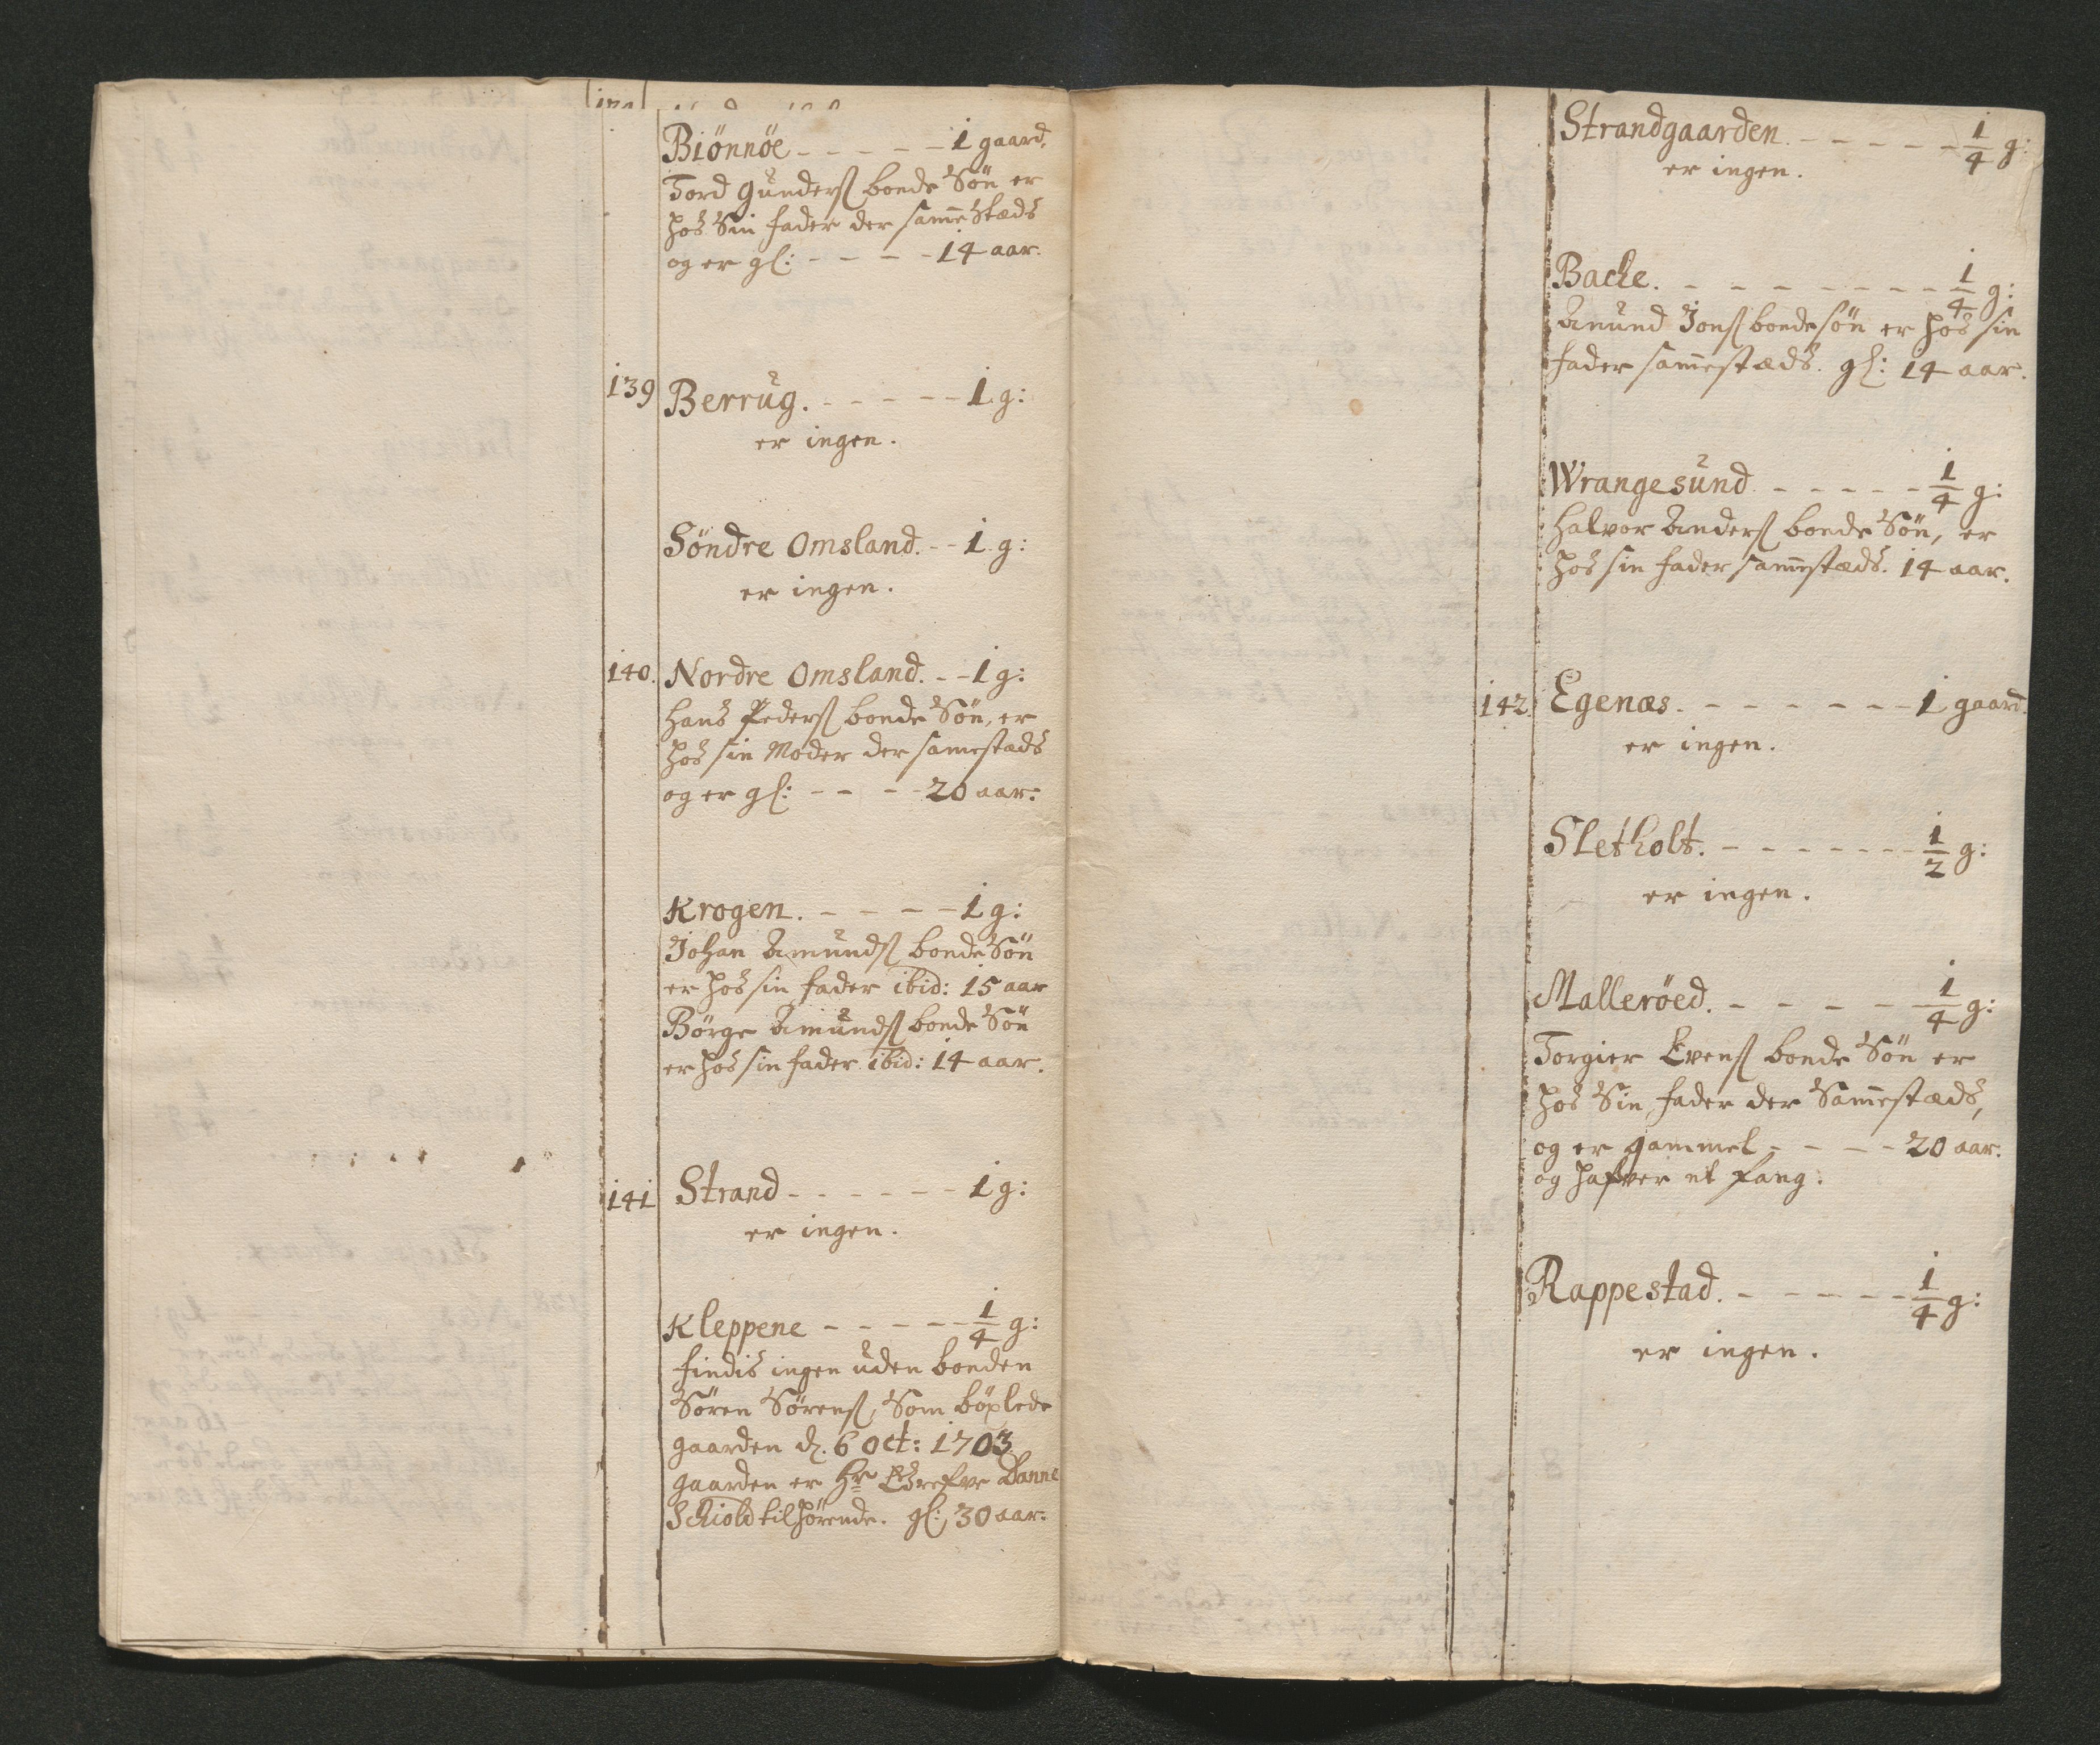 Biönnöe - - - - - 1 gaard.
Tord Gunders bonde Sön er
hos Sin fader der sam̄e Stæds
og er gl: - - - - - 14 aar.
139 Berrug. - - - - - 1 g:
er ingen.
Söndre Omsland. - - 1 g:
er ingen.
140. Nordre Omsland. - - 1 g:
Hans Peders bonde Sön, er
hos sin Moder der samestæds
og er gl: - - - - 20 aar:
Krogen. - - - - - 1 g:
Johan Amunds bonde Sön
er hos sin fader ibid: 15 aar
Börge Amunds bonde Sön
er hos sin fader ibid: 14 aar.
141 Strand - - - - - - 1 g:
er ingen.
Kleppene - - - - - 1/4 g:
findis ingen uden bonden
Sören Sörens, Som böxlede
gaarden d. 6 Oct: 1703
gaarden er Hr Danne
Schiold tilhörende. gl: 30 aar:
Strandgaarden. - - - - - 1/4 g:
er ingen.
Backe. - - - - - - - - 1/4 g:
Anund Jons bonde sön er hos sin
fader sam̄estæds. gl: 14 aar.
Wrangesund - - - - - 1/4 g:
Halvor Anders bonde Sön, er
hos sin fader sam̄estæds. 14 aar.
142. Egenæs. - - - - - - - 1 gaard.
er ingen.
Sletholt. - - - - - - - 1/2 g:
er ingen.
Malleröed. - - - - - 1/4 g:
Torgier Evens bonde Sön er
hos Sin fader der Sam̄estæds,
og er gammel - - - - 20 aar.
og hafver et fang:
Rappestad. - - - - - - 1/4 g:
er ingen.